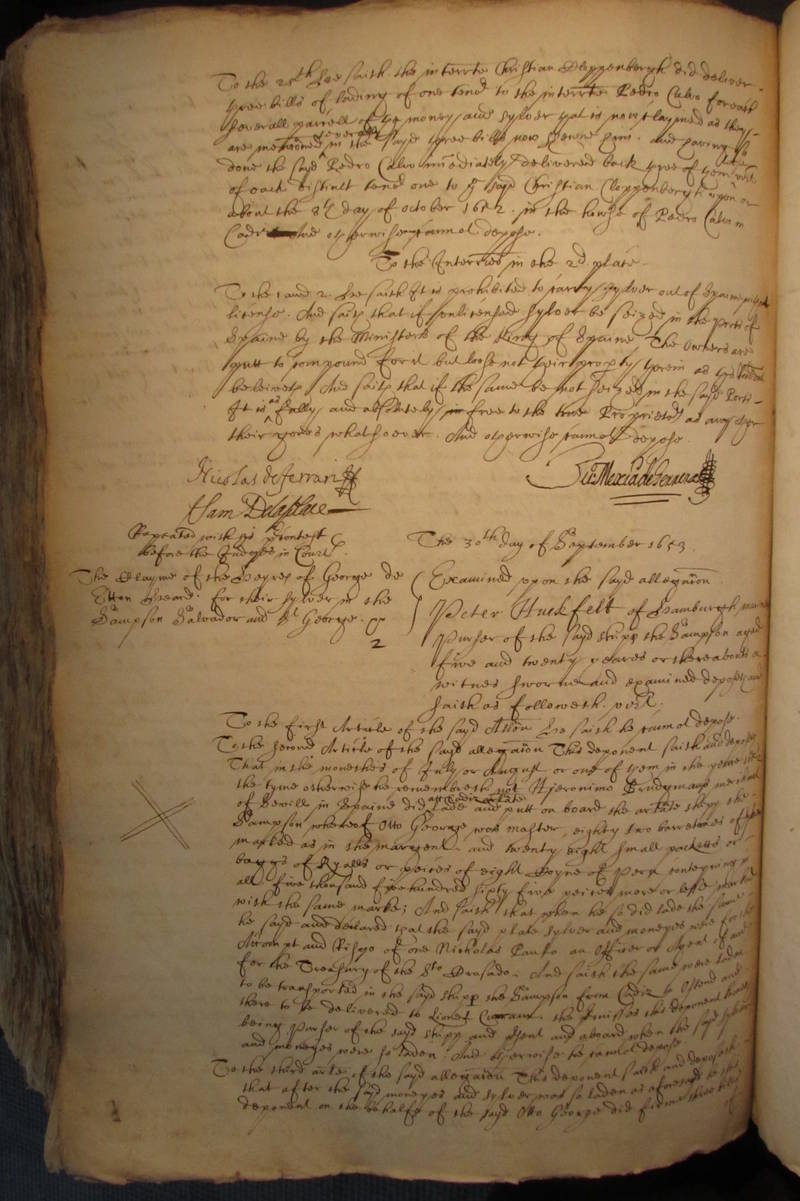 To the 28th hee saith the interrte Christian Cloppenbergh did deliver
three bills of lading of one tenor to the interrte Pedro Calvo for each
severall parcell of the moneys and sylver that is now claymed as they
are menconed in the severall sayd three bills now
done the sayd Pedro Calvo immediately delivered back three of them
of each distinct tenor one to the sayd Christian Cloppenbergh upon or
about the 8th day of October 1652. in the house of Pedro Calvo in
Cadiz And otherwise cannot depose.
To the Interries in the 2d place
To the 1 and 2 hee saith It is prohibited to carry sylver out of Spaine
license. And saith that if such sylver be seized in the ports of
Spaine by the Ministers of the King of Spaine The Owners are
putt to compound for it but loose not their property therein as this
beleiveth And saith that if the same be not seized in the sayd Ports
It is as fully and absolutely free to the true Proprietors as any other
their goods whatsoever. And otherwise cannot depose
Nicolas de ferrari
Sam Delaplace
Repeated with his
before the Judges in Court.
The 30th day of September 1653.
The Clayme of the
for their sylver in the
Sampson Salvador and St George.
2
Examined upon the sayd allegacon
Peter Huckfelt of Hamburgh
Purser of the sayd shipp the Sampson aged
five and twenty yeares or thereabouts a
witnes sworne and examined deposeth and
saith as followeth. vizt.
To the first Article of the sayd Allon hee saith he cannot depose.
To the second Article of the sayd allegacon This deponent saith and deposeth
That in the monethes of July or August or one of them in the yeare
the tyme otherwise he remembreth not Hieronimo
of Sevill in Spaine did at Cadiz lade and putt on board the arlate shipp the
Sampson whereof Otto George was master, eighty two barretones of sylver
marked as in the margent. and twenty eight small packetts or
baggs of Ryalls or peices of eight Coyne of Peru conteyning in
all five thousand five hundred sixty five peices more or lesse marked
with the same marke; And saith that when he so did lade the same
he sayd and declared that the sayd plate sylver and moneyes were for the
Accompt and Risgo of one Nicholas an Officer or Agent
for the Treasury of the Sto Crusado. And saith the same were laden
to be transported in the sayd shipp the Sampson from Cadiz to Ostend and
there to be delivered to Lionel the premisses this deponent knoweth
being Purser of the sayd shipp and present and aboard when the sayd sylver
and moneyes were so laden And otherwise he cannot depose
To the third arle of the sayd allegacon This deponent saith and deposeth
that after the sayd moneyes and sylver was so laden as aforesayd he this
deponent on the behalfe of the sayd Otto George did firme three bills
of